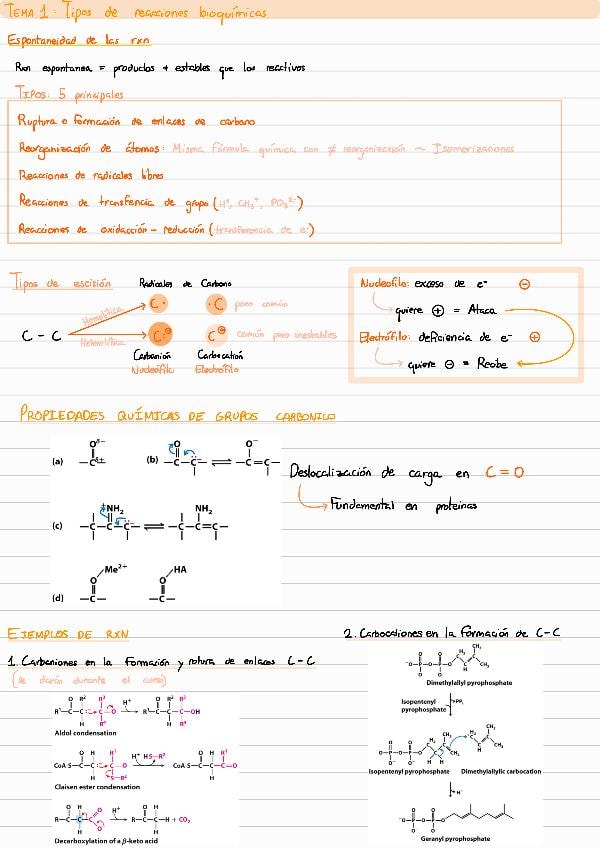 TEMA 1: Tipos de reacciones bioquímicas
Espontaneidad de las rxn
Rxn espontanea = productos + estables que los reactivos
TIPOS: 5 principales
Ruptura o formación de enlaces de carbono
Reorganización de átomos: Misma fórmula química con ≠ reorganización ~ Isomerizaciones
Reacciones de radicales libres
Reacciones de transfencia de grupo (H⁺, CH₃⁺, PO₃²⁻)
Reacciones de oxidacción - reducción (transferencia de e⁻)
Tipos de escisión
Radicales de Carbono
Homolítica
C·
·C
poco común
C - C
Heterolítica
C:⊖
C⊕
común pero inestables
Carbanión
Carbocatión
Nucleófilo
Electrófilo
Nucleófilo: exceso de e⁻ ⊖
quiere ⊕ = Ataca
Electrófilo: deficiencia de e⁻ ⊕
quiere ⊖ = Recibe
PROPIEDADES QUÍMICAS DE GRUPOS CARBONILO
(a)
(b)
(c)
(d)
Me²⁺
HA
Deslocalización de carga en C=O
Fundamental en proteinas
EJEMPLOS DE RXN
1. Carbaniones en la formación y rotura de enlaces C-C
(se darán durante el curso)
Aldol condensation
Claisen ester condensation
Decarboxylation of a β-keto acid
2. Carbocationes en la formación de C-C
Dimethylallyl pyrophosphate
Isopentenyl
pyrophosphate
PPᵢ
Isopentenyl pyrophosphate
Dimethylallylic carbocation
H⁺
Geranyl pyrophosphate